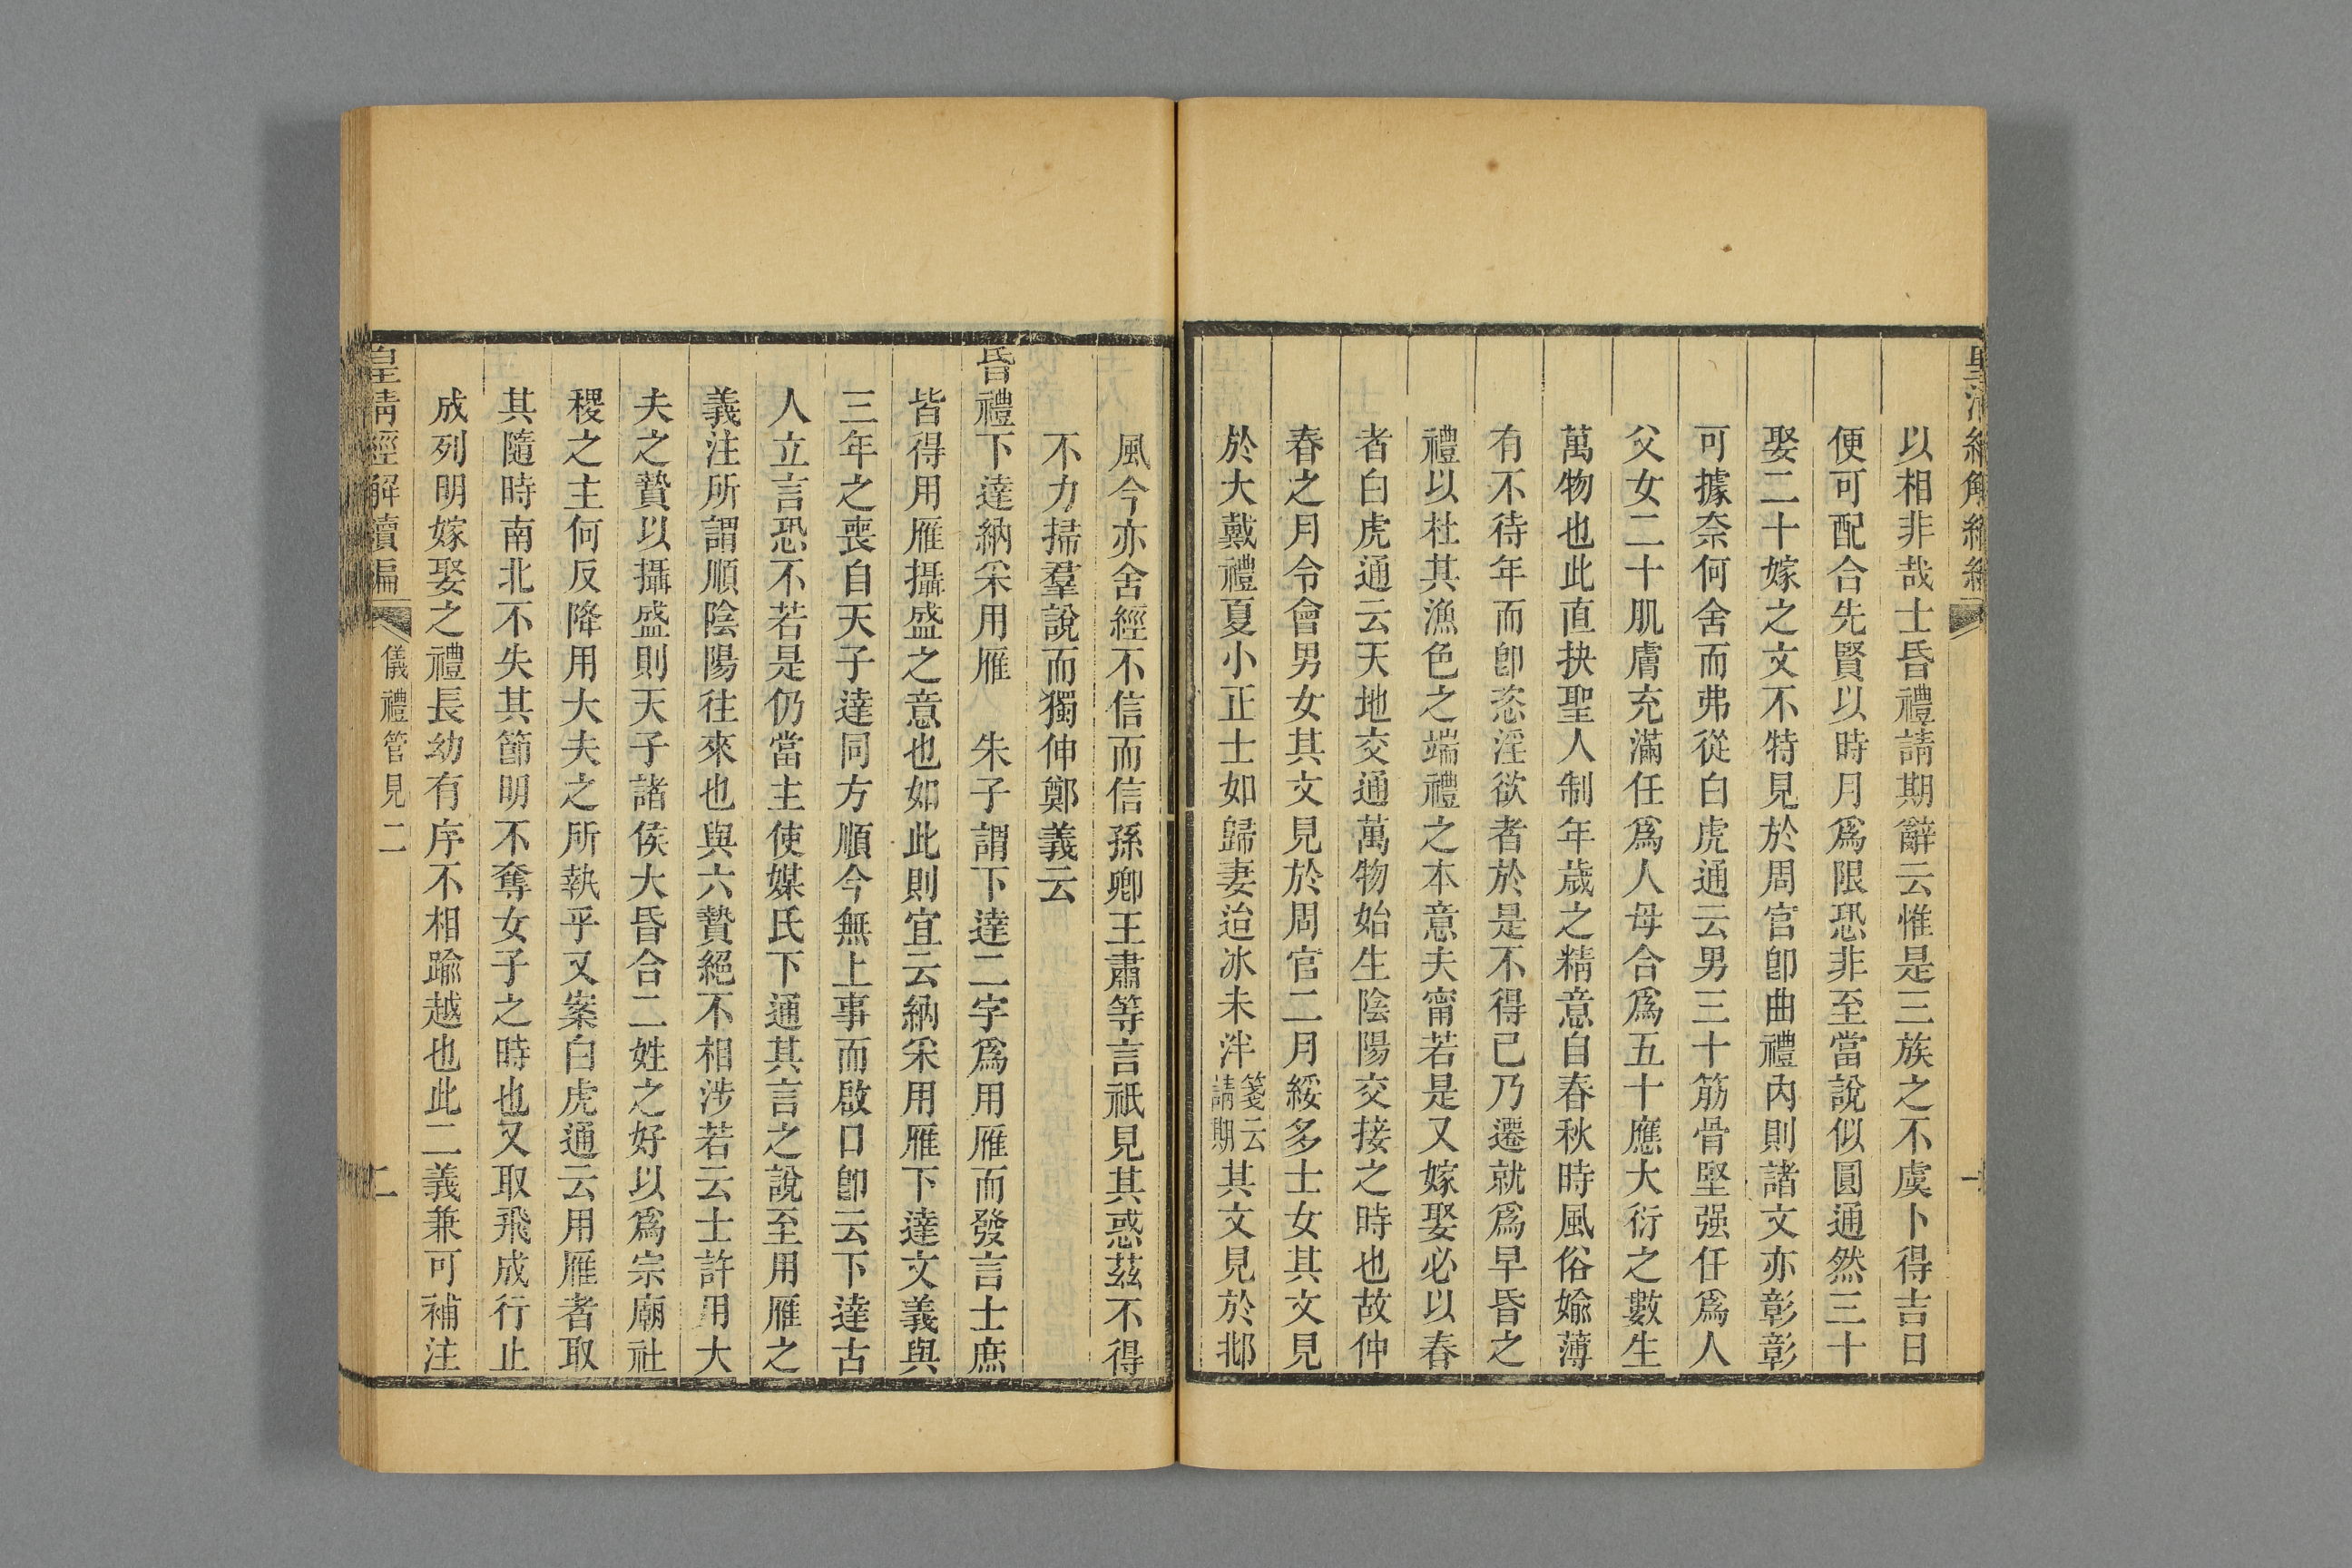 以相非哉士昏禮請期辭云惟是三族之不虞卜得吉日
便可配合先賢以時月爲限恐非至當說似圓通然三十
娶二十嫁之文不特見於周官卽曲禮內則諸文亦彰彰
可據奈何舍而弗從白虎通云男三十筋骨堅强任爲人
父女二十肌膚充滿任爲人母合爲五十應大衍之數生
萬物也此直抉聖人制年歲之精意自春秋時風俗媮薄
有不待年而卽恣淫欲者於是不得已乃遷就爲早昏之
禮以杜其漁色之端禮之本意夫甯若是又嫁娶必以春
者白虎通云天地交通萬物始生陰陽交接之時也故仲
春之月令會男女其文見於周官二月綏多士女其文見
於大戴禮夏小正士如歸妻迨冰未泮箋云請期其文見於邶
風今亦舍經不信而信孫卿王肅等言祇見其惑茲不得
不力掃羣說而獨伸鄭義云
昏禮下達納采用雁 朱子謂下達二字爲用雁而發言士庶
皆得用雁攝盛之意也如此則宜云納采用雁下達文義與
三年之喪自天子達同方順今無上事而啟口卽云下達古
人立言恐不若是仍當主使媒氏下通其言之說至用雁之
義注所謂順陰陽往來也與六贄絕不相涉若云士許用大
夫之贄以攝盛則天子諸侯大昏合二姓之好以爲宗廟社
稷之主何反降用大夫之所執乎又案白虎通云用雁者取
其隨時南北不失其節明不奪女子之時也又取飛成行止
成列明嫁娶之禮長幼有序不相踰越也此二義兼可補注
皇清經解續編 儀禮管見二 二